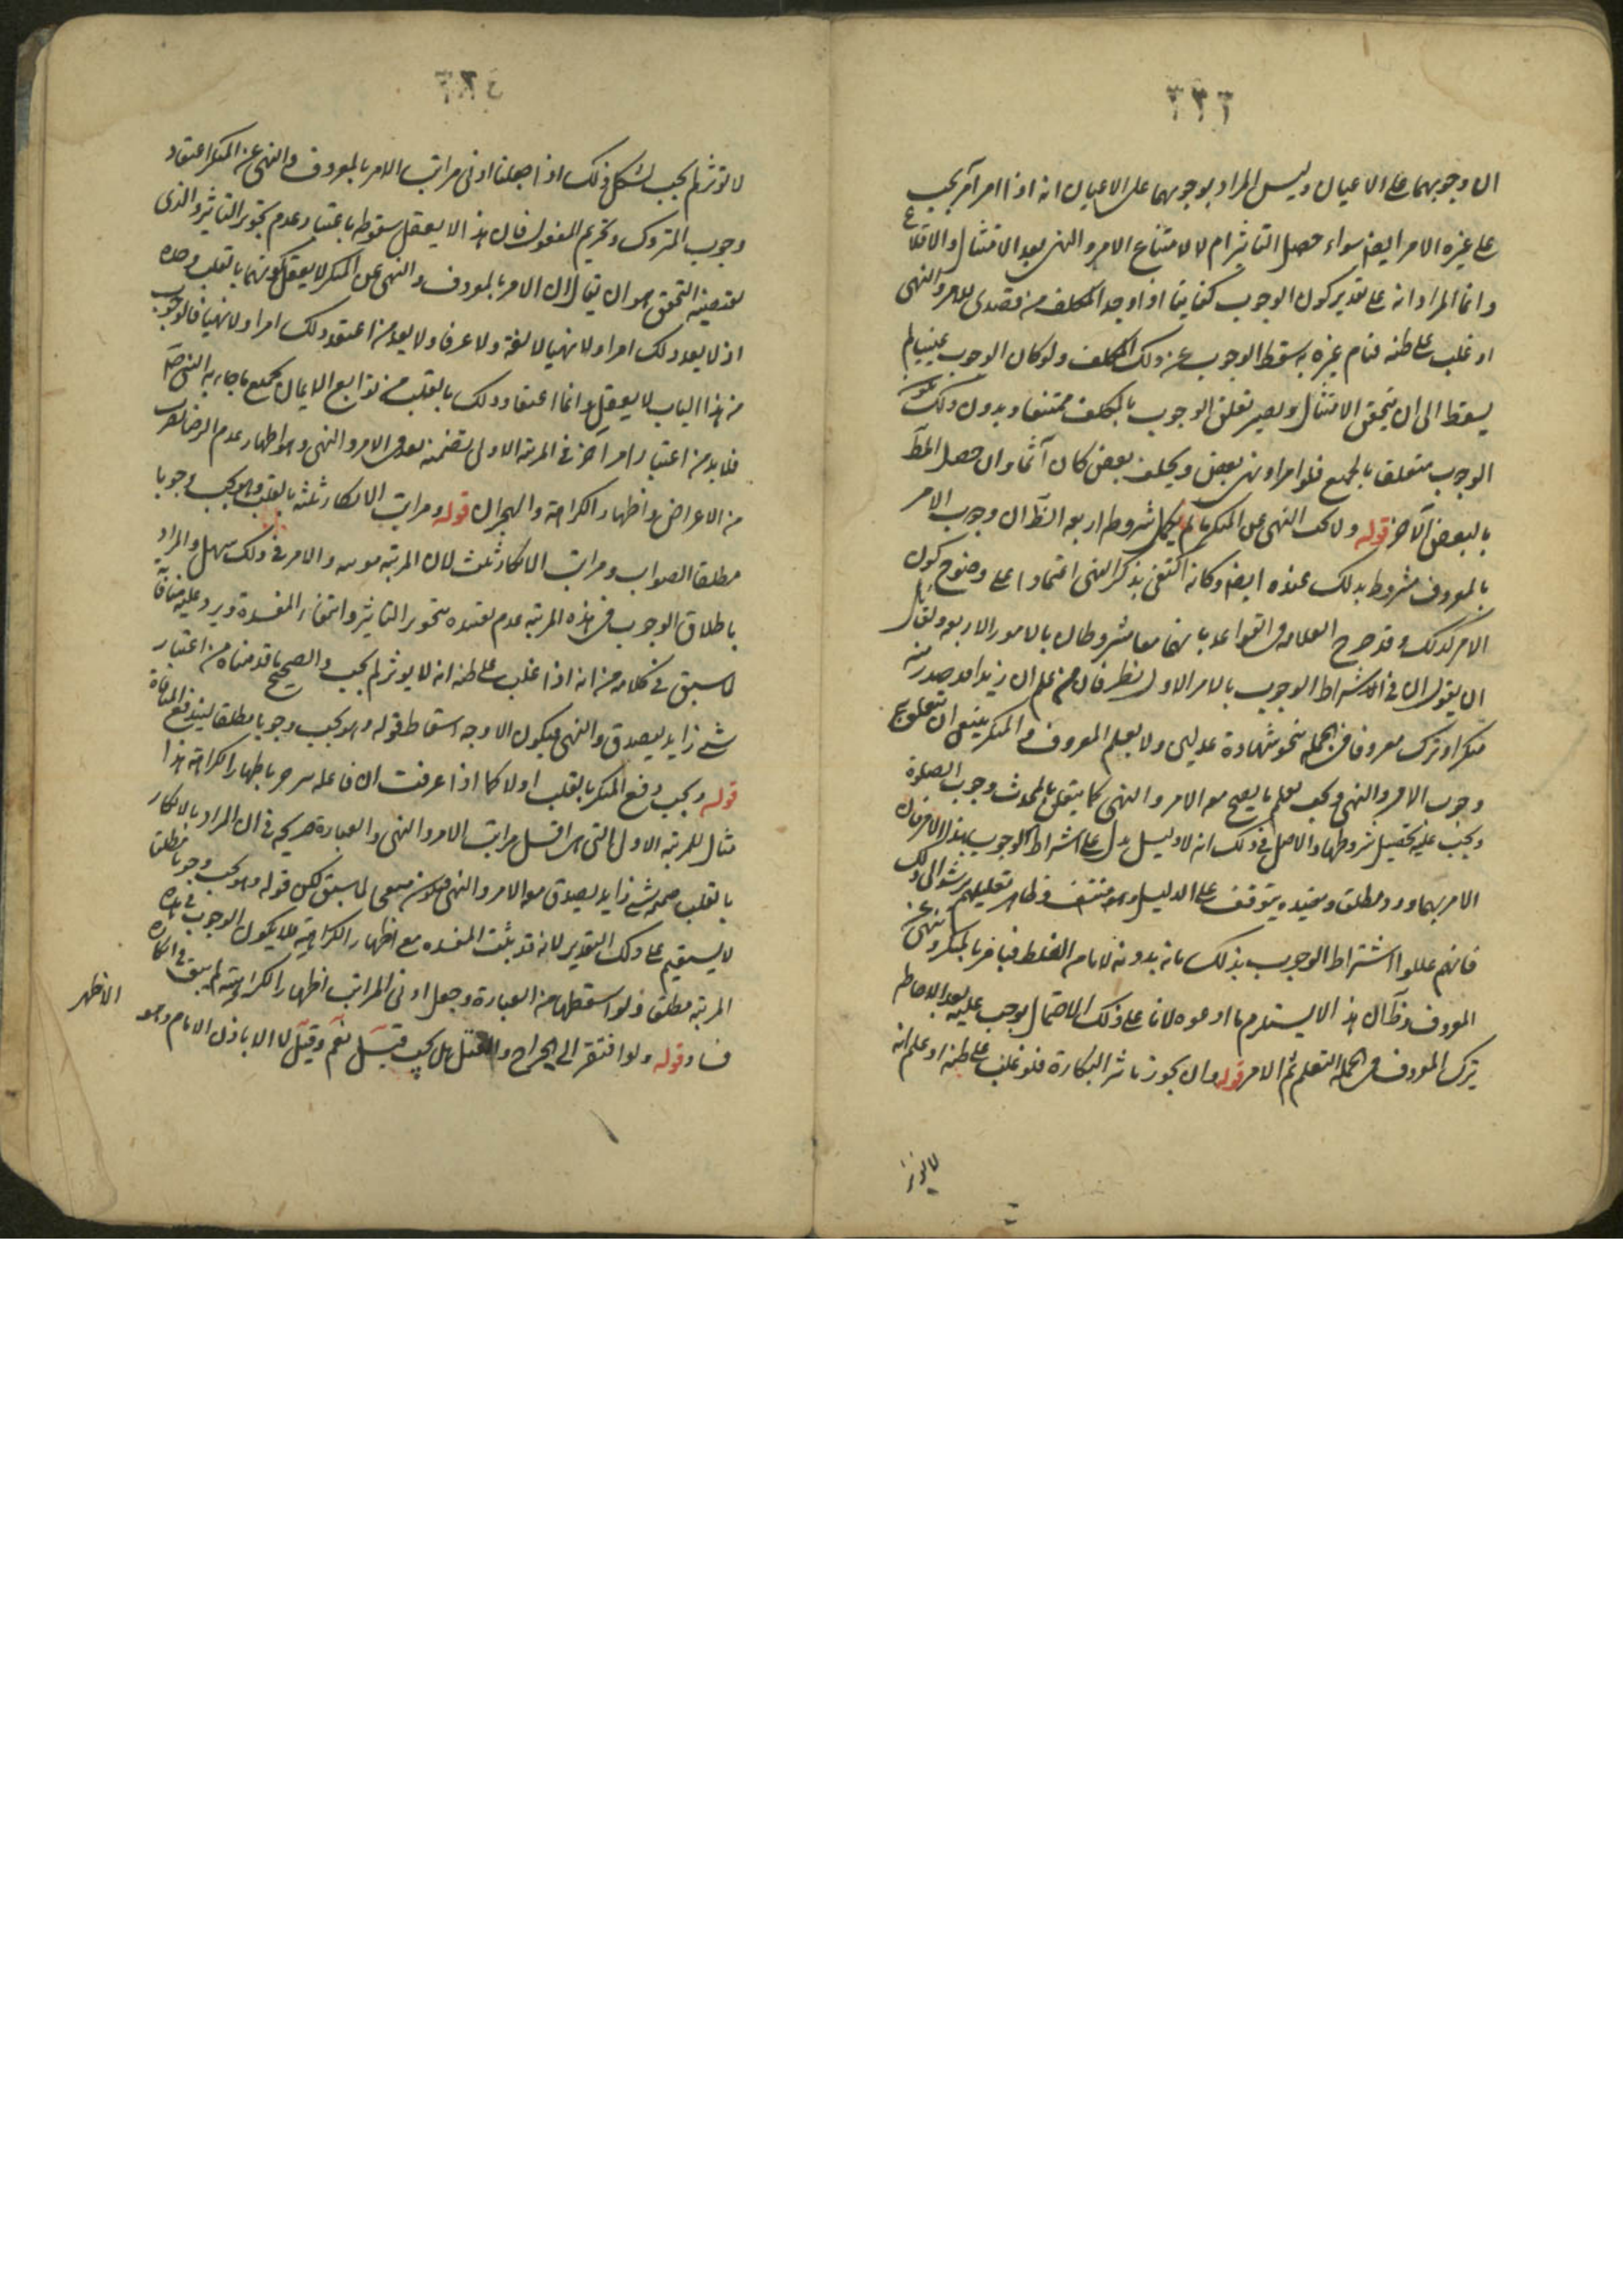 ٣٣٦
ان وجوبهما على الاعيان وليس المراد بوجوبهما على الاعيان انه اذا امر آمر يجب
على غيره الامر ايضا سواء حصل التاثير ام لا لامتناع الامر والنهى بعد الامتثال والاقلاع
وانما المراد انه على تقدير كون الوجوب كفايتا اذا وجد المكلف من تصدى للامر والنهى
او غلب على ظنه قيام غيره به سقط الوجوب عن ذلك المكلف ولو كان الوجوب عينيا لم
يسقط الى ان يتحقق الامتثال ويصير تعلق الوجوب بالمكلف ممتنعا وبدون ذلك يكون
الوجوب متعلقا بالجميع فلو امر او نهى بعض وتخلف بعض كان آثما وان حصل المط
بالبعض الآخر قوله ولا يجب النهى عن المنكر ما لم يكمل شروط اربعه الظ ان وجوب الامر
بالمعروف مشروط بذلك عنده ايضا وكانه اكتفى بذكر النهى اعتمادا على وضوح كون
الامر كذلك وقد صرح العلامه فى القواعد بانهما معا مشروطان بالامور الاربعه ولقائل
ان يقول ان فى اشتراط الوجوب بالامر الاول نظر فان من علم ان زيدا قد صدر منه
منكر او ترك معروفا فى الجمله بنحو شهادة عدلين ولا يعلم المعروف والمنكر ينبغى ان يتعلق به
وجوب الامر والنهى ويجب تعلم ما يصح معه الامر والنهى كما يتعلق بالمحدث وجوب الصلوة
ويجب عليه تحصيل شروطها والاصل فى ذلك انه لا دليل يدل على اشتراط الوجوب بهذا الامر فان
الامر بهما ورد مطلقا وتقييده يتوقف على الدليل وهو منتف وظاهر تعليلهم يرشد الى ذلك
فانهم عللوا اشتراط الوجوب بذلك بانه بدونه لا يامن الغلط فيامر بالمنكر وينهى عن
المعروف وظ ان هذا لا يستلزم ما ادعوه لانا على ذلك الاحتمال يوجب عليه بعد الاحاطه
بترك المعروف فى الجمله التعلم ثم الامر قوله وان يجوز تاثير انكاره فلو غلب على ظنه او علم انه
لا يؤثر
لا يؤثر لم يجب يشكل ذلك اذا جعلنا ادنى مراتب الامر بالمعروف والنهى عن المنكر اعتقاد
وجوب المتروك وتحريم المفعول فان هذا لا يعقل سقوطه باعتبار عدم تجويز التاثير والذى
يقتضيه التحقيق هو ان يقال ان الامر بالمعروف والنهى عن المنكر لا يعقل كونهما بالقلب وحده
اذ لا يعد ذلك امرا ولا نهيا لا لغة ولا عرفا ولا يعد من اعتقد ذلك امرا ولا نهيا فالوجوب
من هذا الباب لا يعقل وانما اعتقاد ذلك بالقلب من توابع الايمان بجميع ما جاء به النبى ص
فلا بد من اعتبار امر آخر فى المرتبة الاولى يتضمنه معنى الامر والنهى وهو اظهار عدم الرضا بضرب
من الاعراض واظهار الكراهة والهجران قوله ومراتب الانكار ثلثه بالقلب وهو يجب وجوبا
مطلقا الصواب ومراتب الانكار ثلث لان المرتبة مونثه والامر فى ذلك سهل والمراد
باطلاق الوجوب فى هذه المرتبه عدم تقييده بتجويز التاثير وانتفاء المفسدة ويرد عليه منافاته
لما سبق فى كلامه من انه اذا غلب على ظنه انه لا يؤثر لم يجب والصحيح ما قدمناه من اعتبار
شئ زايد ليصدق والنهى فيكون الاوجه اسقاط قوله وهو يجب وجوبا مطلقا ليندفع المنافاة
قوله ويجب دفع المنكر بالقلب اولا كما اذا عرفت ان فاعله ينزجر باظهار الكراهة هذا
مثال للمرتبه الاولى التى هى اقل مراتب الامر والنهى والعبارة صريحه فى ان المراد بالانكار
بالقلب ضميمه شئ زايد يصدق معه الامر والنهى فيكون منبها لما سبق لكن قوله وهو يجب وجوبا مطلقا
لا يستقيم على ذلك التقدير لانه قد يثبت المفسده مع اظهار الكراهية فلا يكون الوجوب فى هذه
المرتبة مطلقا ولو اسقطها من العبارة وجعل ادنى المراتب اظهار الكراهية لم يبق فى الكلام
فساد قوله ولو افتقر الى الجراح والقتل هل يجب قيل نعم وقيل لا الا باذن الامام وهو
الاظهر